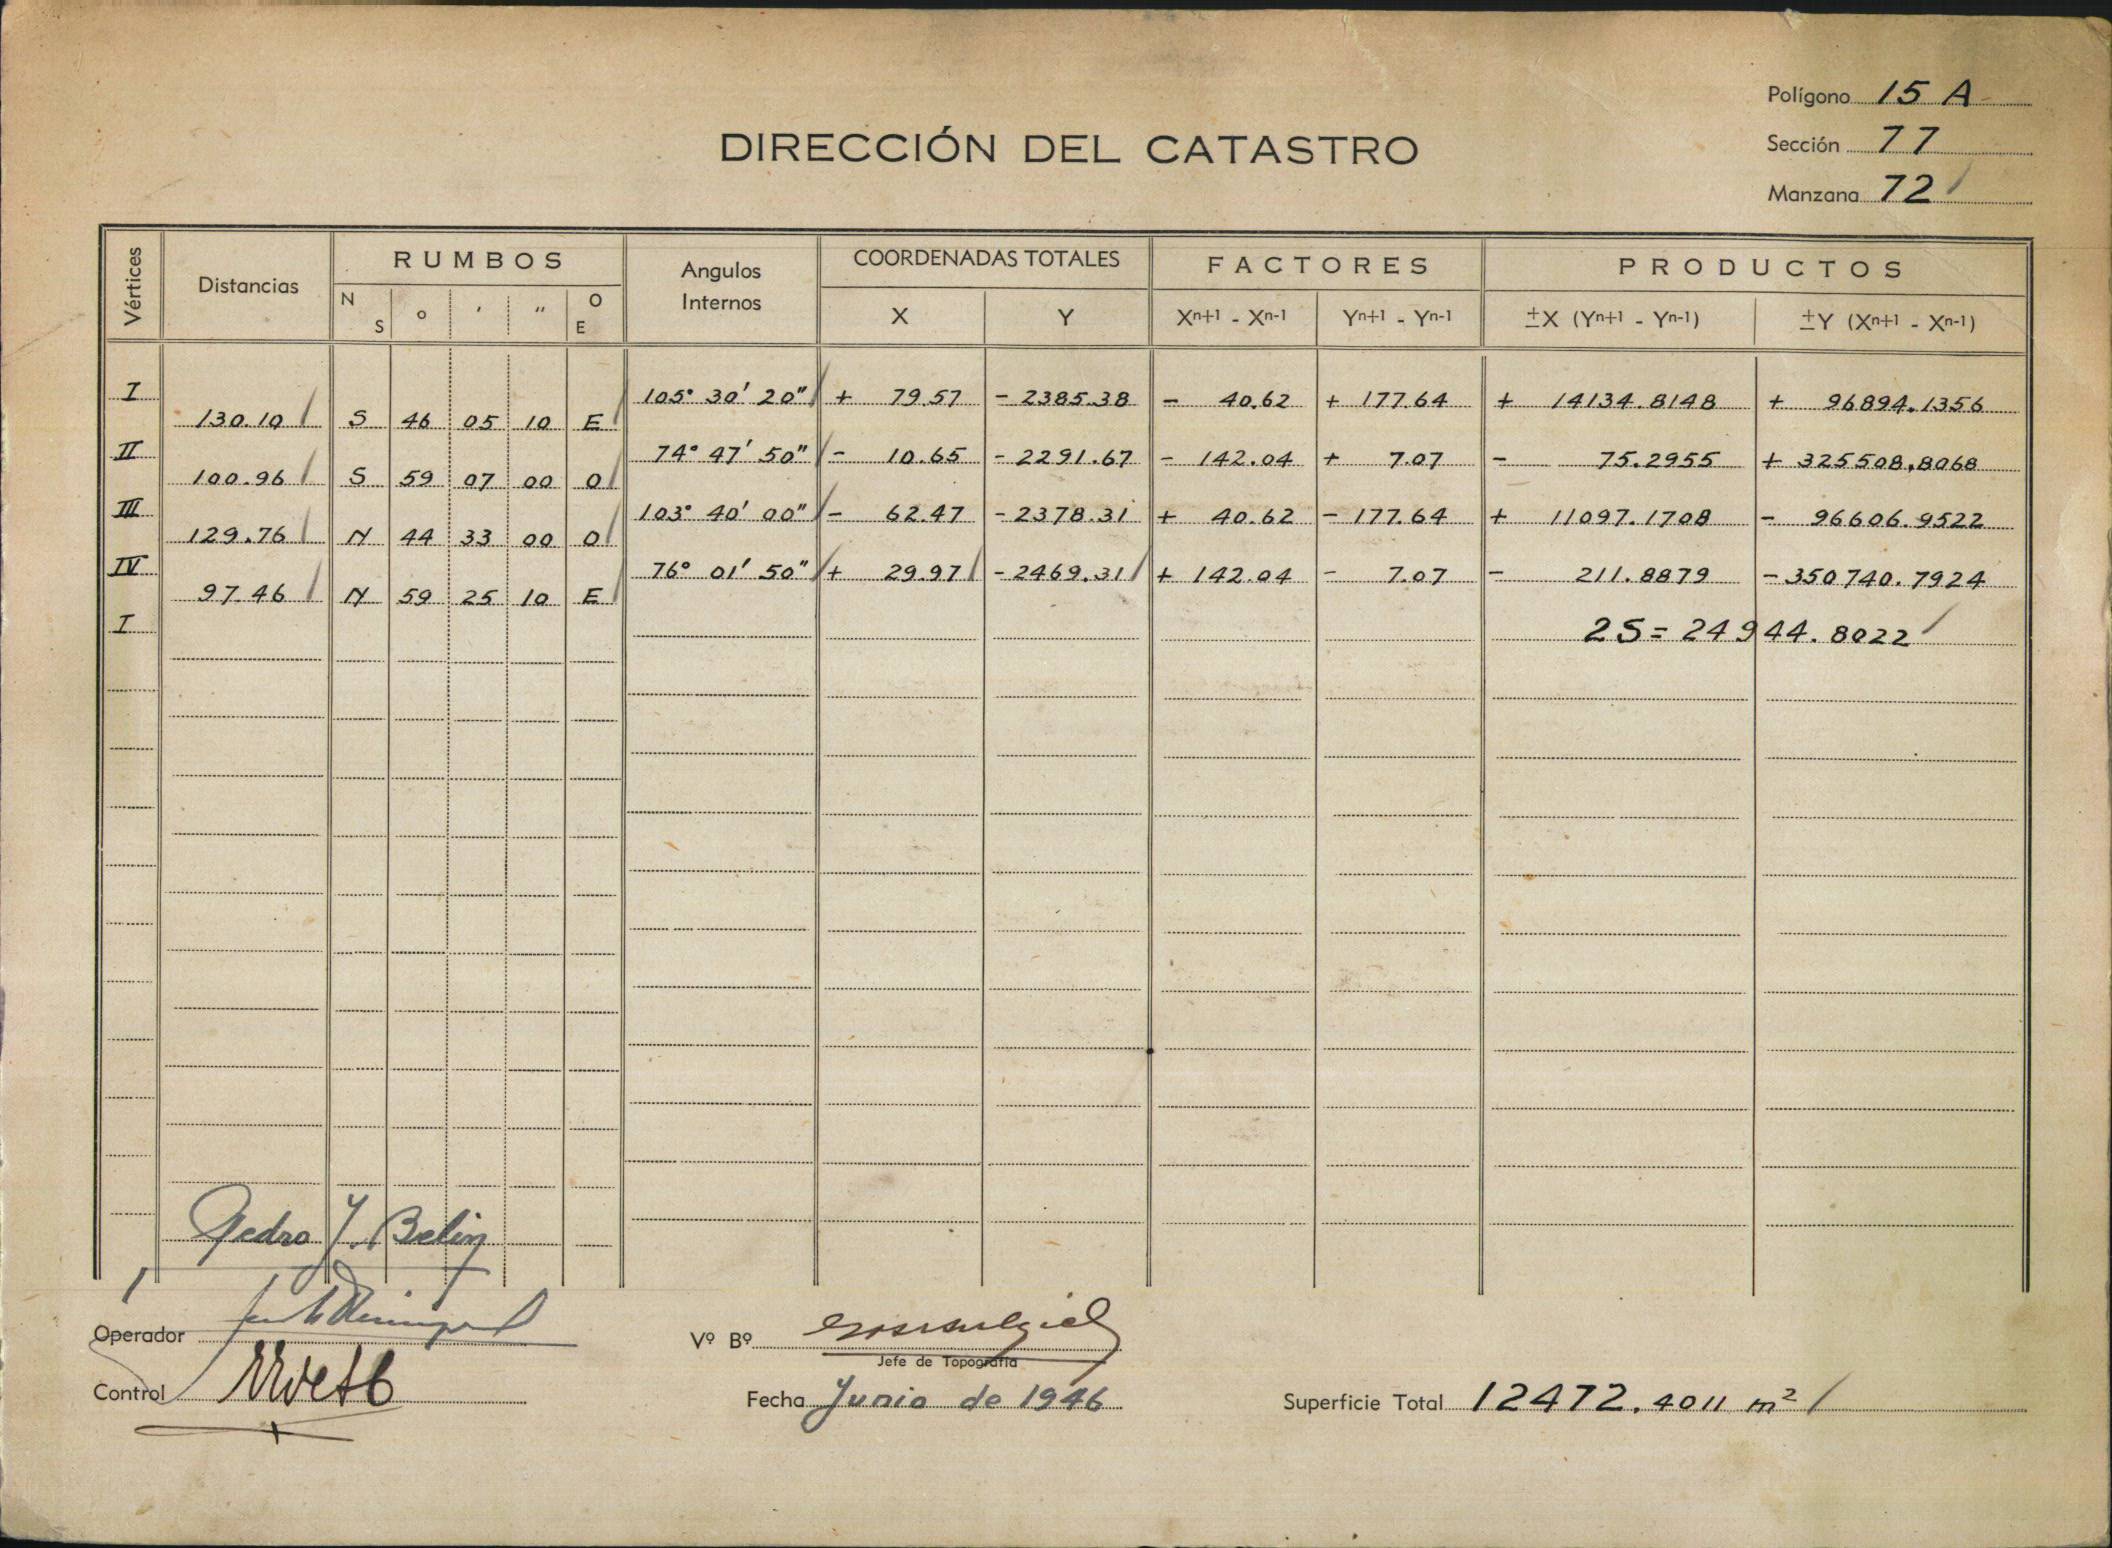 Polígono 15 A
Sección 77
Manzana 72
DIRECCIÓN DEL CATASTRO
Vértices Distancias RUMBOS Angulos Internos COORDENADAS TOTALES FACTORES PRODUCTOS
N S o ' " O E X Y Xn+1 - Xn-1 Yn+1 - Yn-1 ±X (Yn+1 - Yn-1) ±Y (Xn+1 - Xn-1)
I 105° 30' 20" + 79.57 - 2385.38 - 40.62 + 177.64 + 14134.8148 + 96894.1356
130.10 S 46 05 10 E
II 74° 47' 50" - 10.65 - 2291.67 - 142.04 + 7.07 - 75.2955 + 325508.8068
100.96 S 59 07 00 O
III 103° 40' 00" - 62.47 - 2378.31 + 40.62 - 177.64 + 11097.1708 - 96606.9522
129.76 N 44 33 00 O
IV 76° 01' 50" + 29.97 - 2469.31 + 142.04 - 7.07 - 211.8879 - 350740.7924
97.46 N 59 25 10 E
I 2S = 24944.8022
Pedro J. Belin
Operador
Vº Bº
Jefe de Topografía
Control
Fecha Junio de 1946
Superficie Total 12472.4011 m²